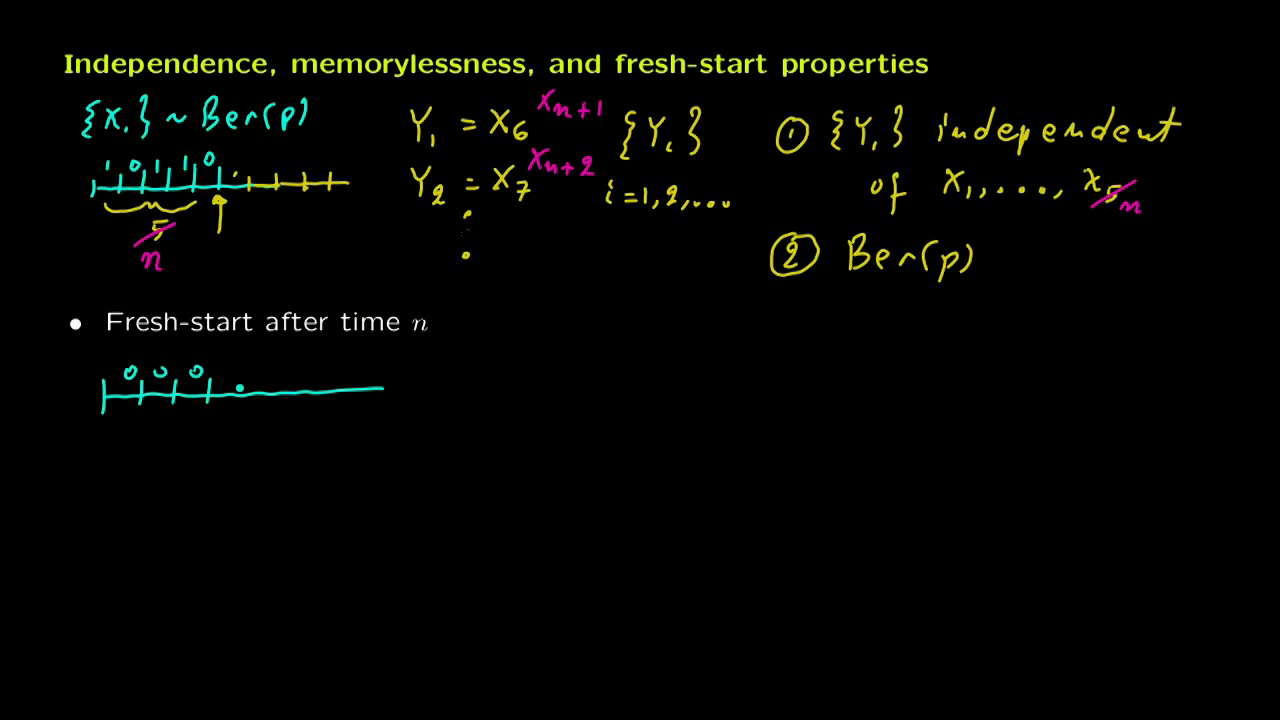 Independence, memorylessness, and fresh-start properties
{X_i} ~ Ber(p)
1 0 1 1 0
5
n
Y_1 = X_6 X_{n+1}
Y_2 = X_7 X_{n+2}
⋮
{Y_i}
i = 1, 2, ...
① {Y_i} independent
of X_1, ..., X_5 n
② Ber(p)
• Fresh-start after time n
0 0 0